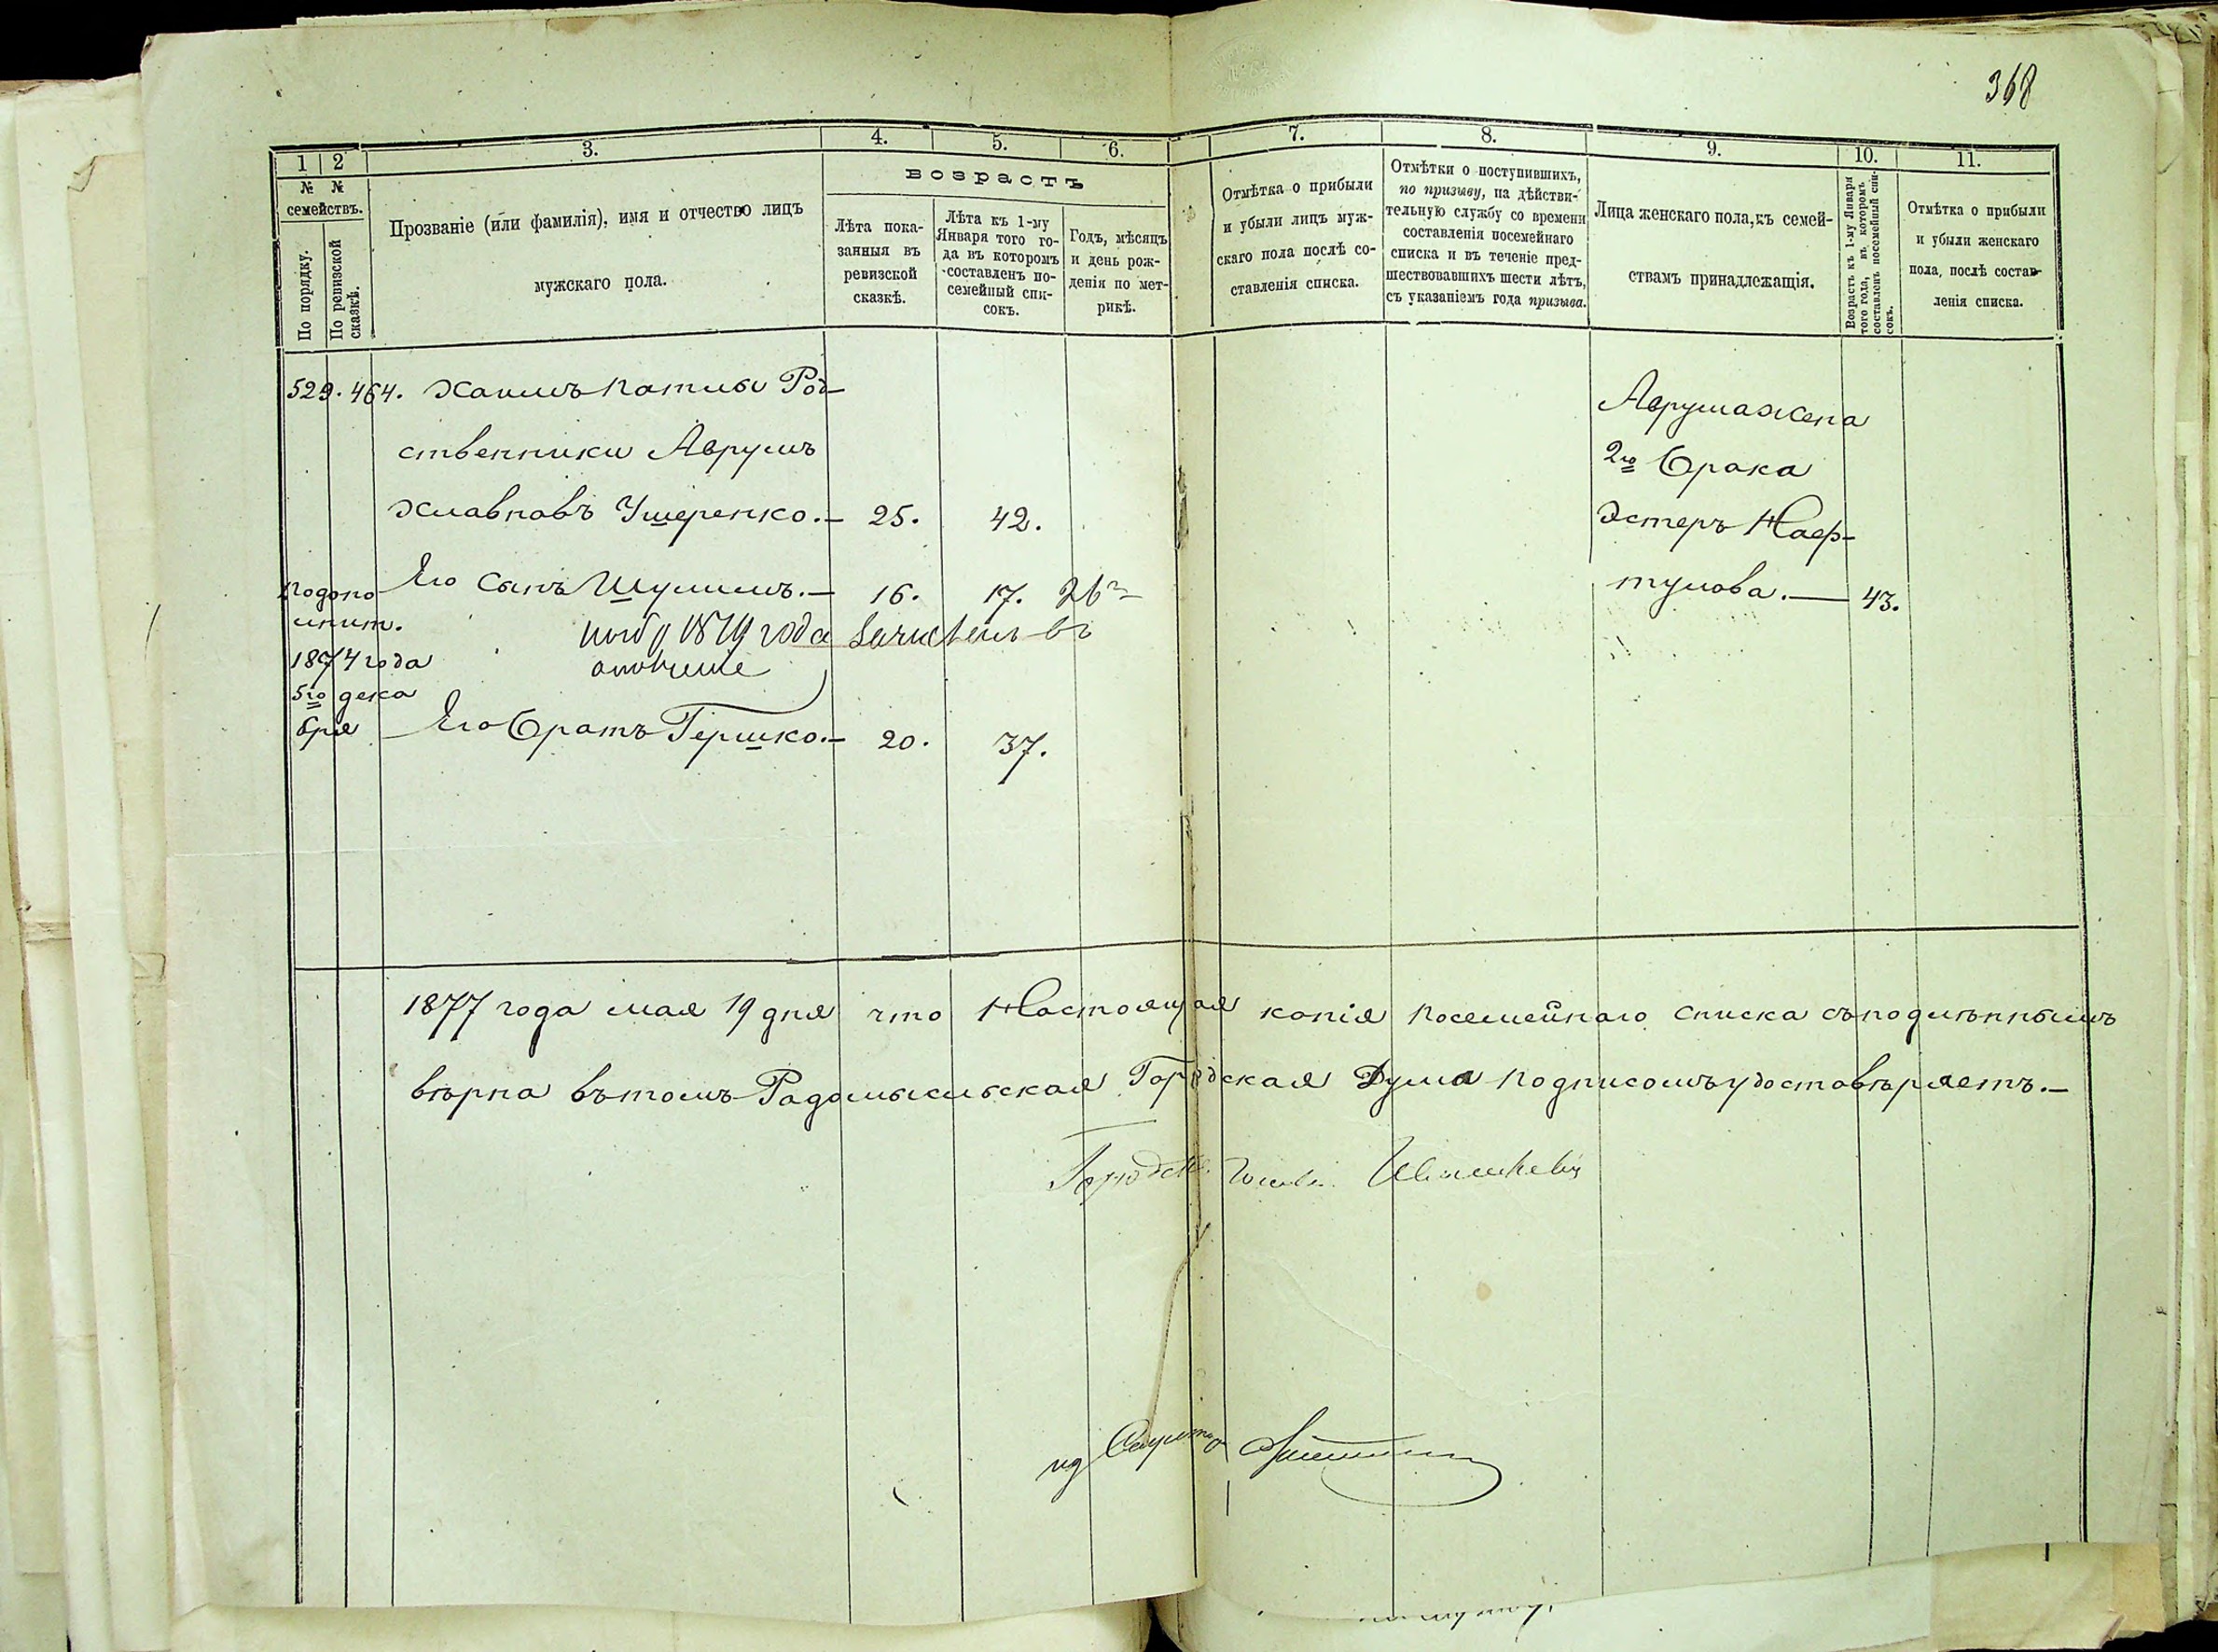 368
1 2 3. 4. 5. 6. 7. 8. 9. 10. 11.
№ №
семействъ.
По порядку.
По ревизской
сказкѣ.
Прозваніе (или фамилія), имя и отчество лицъ
мужскаго пола.
возрастъ
Лѣта пока-
занныя въ
ревизской
сказкѣ.
Лѣта къ 1-му
Января того го-
да въ которомъ
составленъ по-
семейный спи-
сокъ.
Годъ, мѣсяцъ
и день рож-
денія по мет-
рикѣ.
Отмѣтка о прибыли
и убыли лицъ муж-
скаго пола послѣ со-
ставленія списка.
Отмѣтки о поступившихъ,
по призыву, на дѣйстви-
тельную службу со времени
составленія посемейнаго
списка и въ теченіе пред-
шествовавшихъ шести лѣтъ,
съ указаніемъ года призыва.
Лица женскаго пола, къ семей-
ствамъ принадлежащія.
Возрастъ къ 1-му Января
того года, въ которомъ
составленъ посемейный спи-
сокъ.
Отмѣтка о прибыли
и убыли женскаго
пола, послѣ состав-
ленія списка.
529. 464. Род-
ственники Аврумъ
Ушеренко.— 25. 42.
Его сынъ Шулимъ.— 16. 17.
1879 года
Его братъ Гершко.— 20. 37.
подопо
1874 года
5го дека
бря
Аврума жена
2го брака
Эстеръ Наф-
тулова.— 43.
1877 года мая 19 дня что Настоящая копія посемейнаго списка съ подлиннымъ
вѣрна въ томъ Радомысльская Городская Дума подписомъ удостовѣряетъ.—